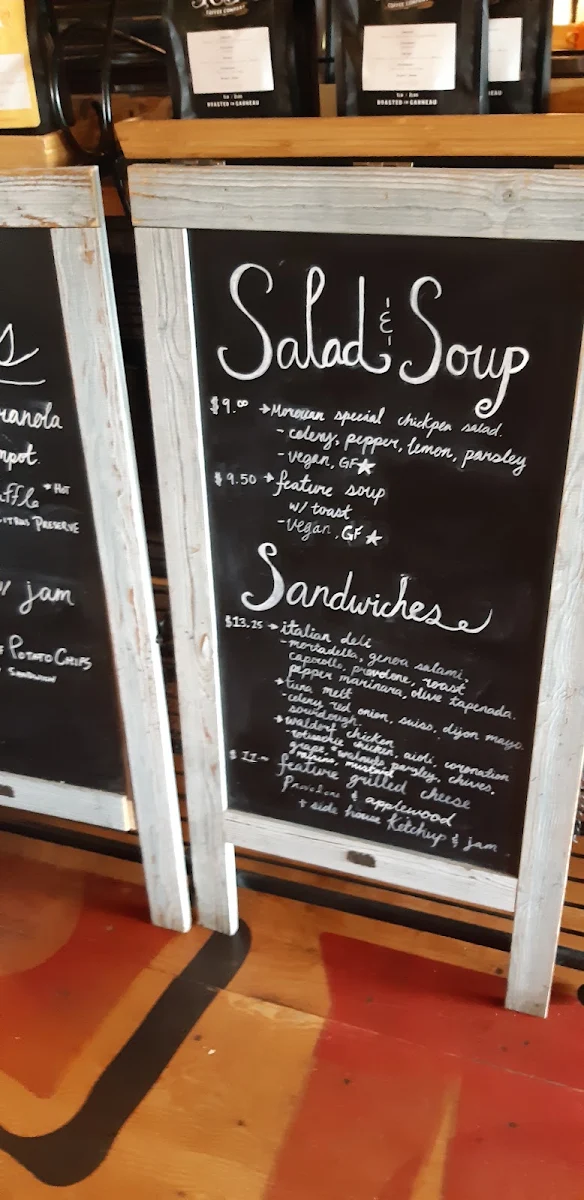 COFFEE COMPANY
ROASTED IN GARNEAU
COFFEE COMPANY
ROASTED IN GARNEAU
Salad & Soup
$9.00 → Moroccan special chickpea salad.
- celery, pepper, lemon, parsley
- vegan, GF ★
$9.50 → feature soup
w/ toast
- vegan, GF ★
Sandwiches
$13.25 → italian deli
- mortadella, genoa salami,
capocollo, provolone, roast
pepper marinara, olive tapenada.
→ tuna melt
- celery, red onion, swiss, dijon mayo.
sourdough.
→ waldorf chicken
- rotisserie chicken, aioli, coronation
grape, walnuts, parsley, chives,
mustard
feature grilled cheese
Provolone & applewood
+ side house Ketchup & jam
ranola
mpot.
affle * HOT
CITRUS PRESERVE
w/ jam
F POTATO CHIPS
SANDWICH